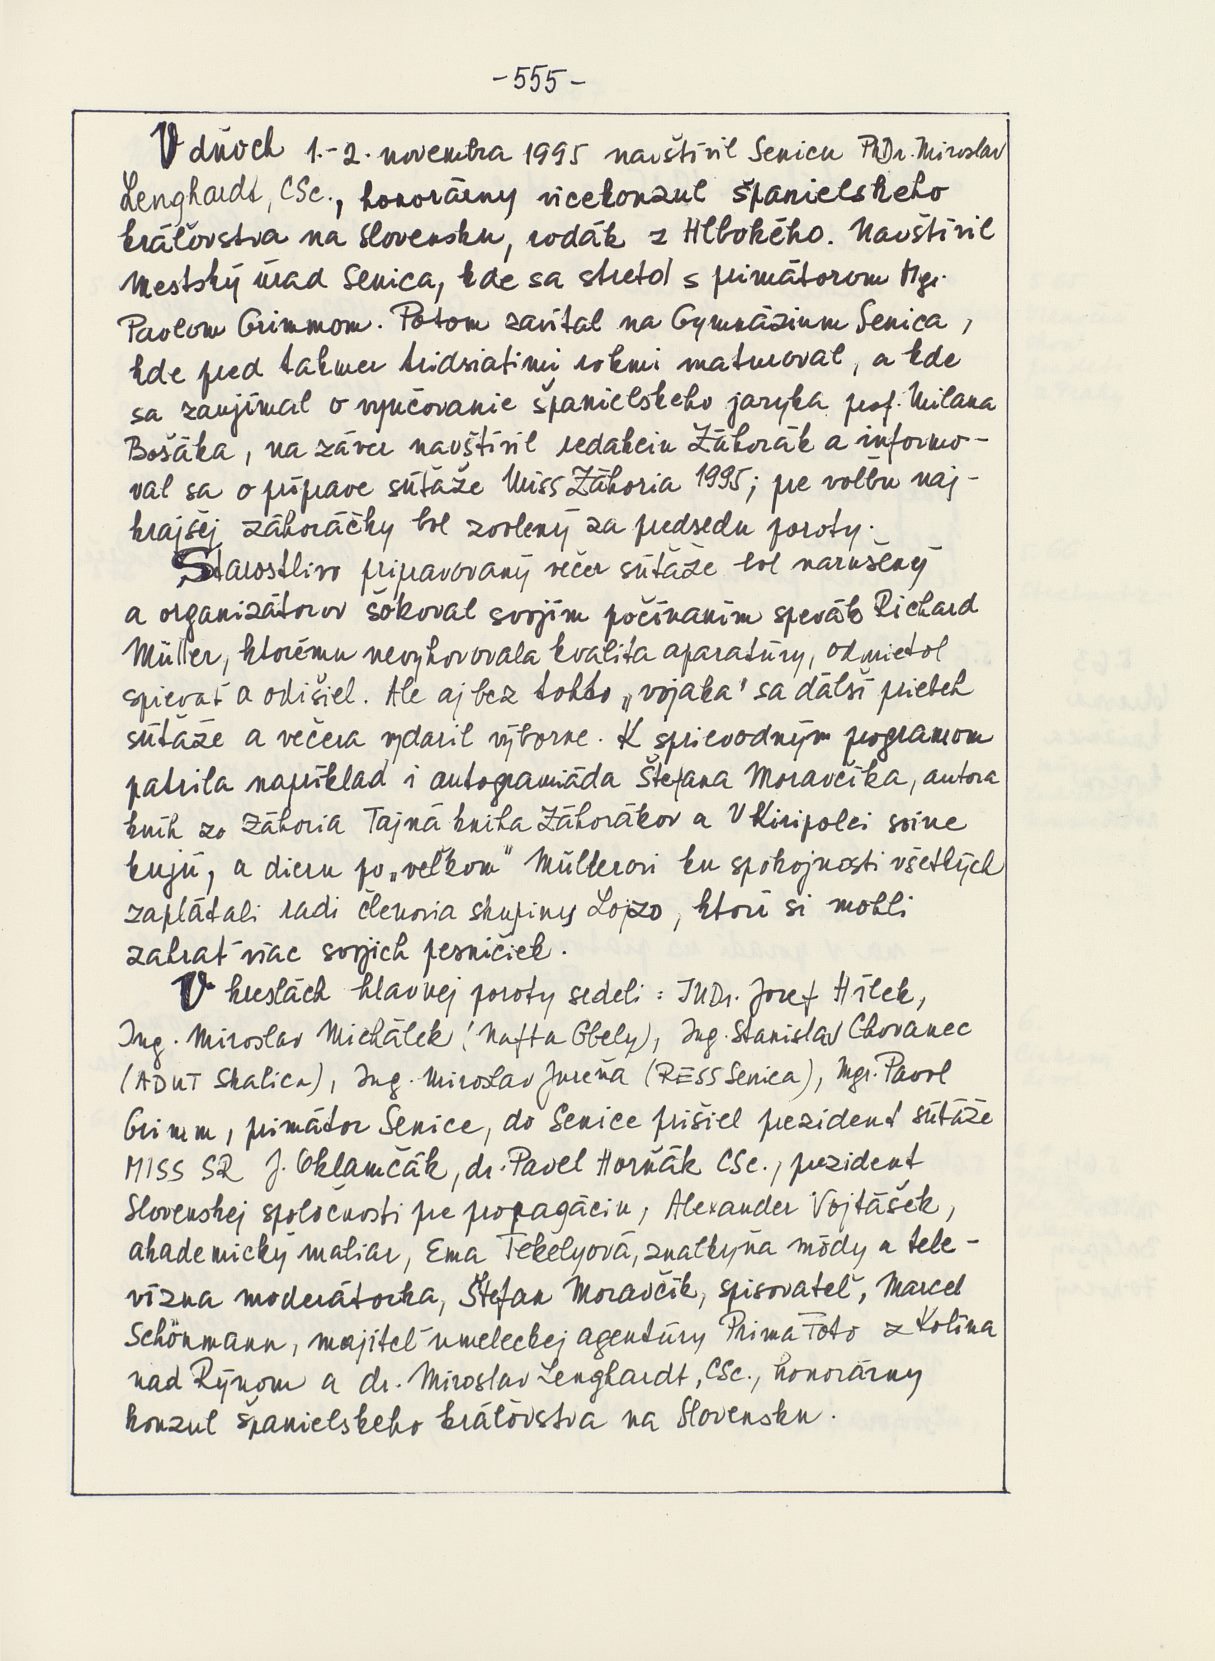 -555-
V dňoch 1.-2. novembra 1995 navštívil Senicu PhDr. Miroslav
Lenghardt, CSc., honorárny vicekonzul španielskeho
kráľovstva na Slovensku, rodák z Hlbokého. Navštívil
Mestský úrad Senica, kde sa stretol s primátorom Mgr.
Pavlom Grimmom. Potom zavítal na Gymnázium Senica,
kde pred takmer tridsiatimi rokmi maturoval, a kde
sa zaujímal o vyučovanie španielskeho jazyka prof. Milana
Bošáka, na záver navštívil redakciu Záhorák a informo-
val sa o príprave súťaže Miss Záhoria 1995; pre voľbu naj-
krajšej záhoráčky bol zvolený za predsedu poroty.
Starostlivo pripravovaný večer súťaže bol narušený
a organizátorov šokoval svojím počínaním spevák Richard
Müller, ktorému nevyhovovala kvalita aparatúry, odmietol
spievať a odišiel. Ale aj bez tohto „vojaka" sa ďalší priebeh
súťaže a večera vydaril výborne. K sprievodným programom
patrila napríklad i autogramiáda Štefana Moravčíka, autora
kníh zo Záhoria Tajná kniha Záhorákov a V Kiripolci svine
kujú, a dieru po „veľkom" Müllerovi ku spokojnosti všetkých
zaplátali radi členovia skupiny Lojzo, ktorí si mohli
zahrať viac svojich pesničiek.
V kreslách hlavnej poroty sedeli: JUDr. Jozef Hílek,
Ing. Miroslav Michálek (Nafta Gbely), Ing. Stanislav Chovanec
(ADUT Skalica), Ing. Miroslav Jureňa (RESS Senica), Mgr. Pavol
Grimm, primátor Senice, do Senice prišiel prezident súťaže
MISS SR J. Oklamčák, dr. Pavel Horňák CSc., prezident
Slovenskej spoločnosti pre propagáciu, Alexander Vojtášek,
akademický maliar, Ema Tekelyová, znalkyňa módy a tele-
vízna moderátorka, Štefan Moravčík, spisovateľ, Marcel
Schönmann, majiteľ umeleckej agentúry Prima Toto z Kolína
nad Rýnom a dr. Miroslav Lenghardt, CSc., honorárny
konzul španielskeho kráľovstva na Slovensku.